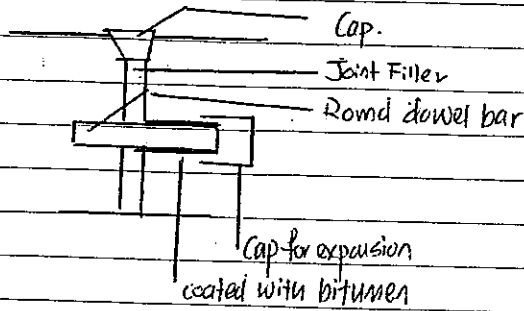 Cap.
Joint Filler
Romd dowel bar
Cap for expansion
coated with bitumen